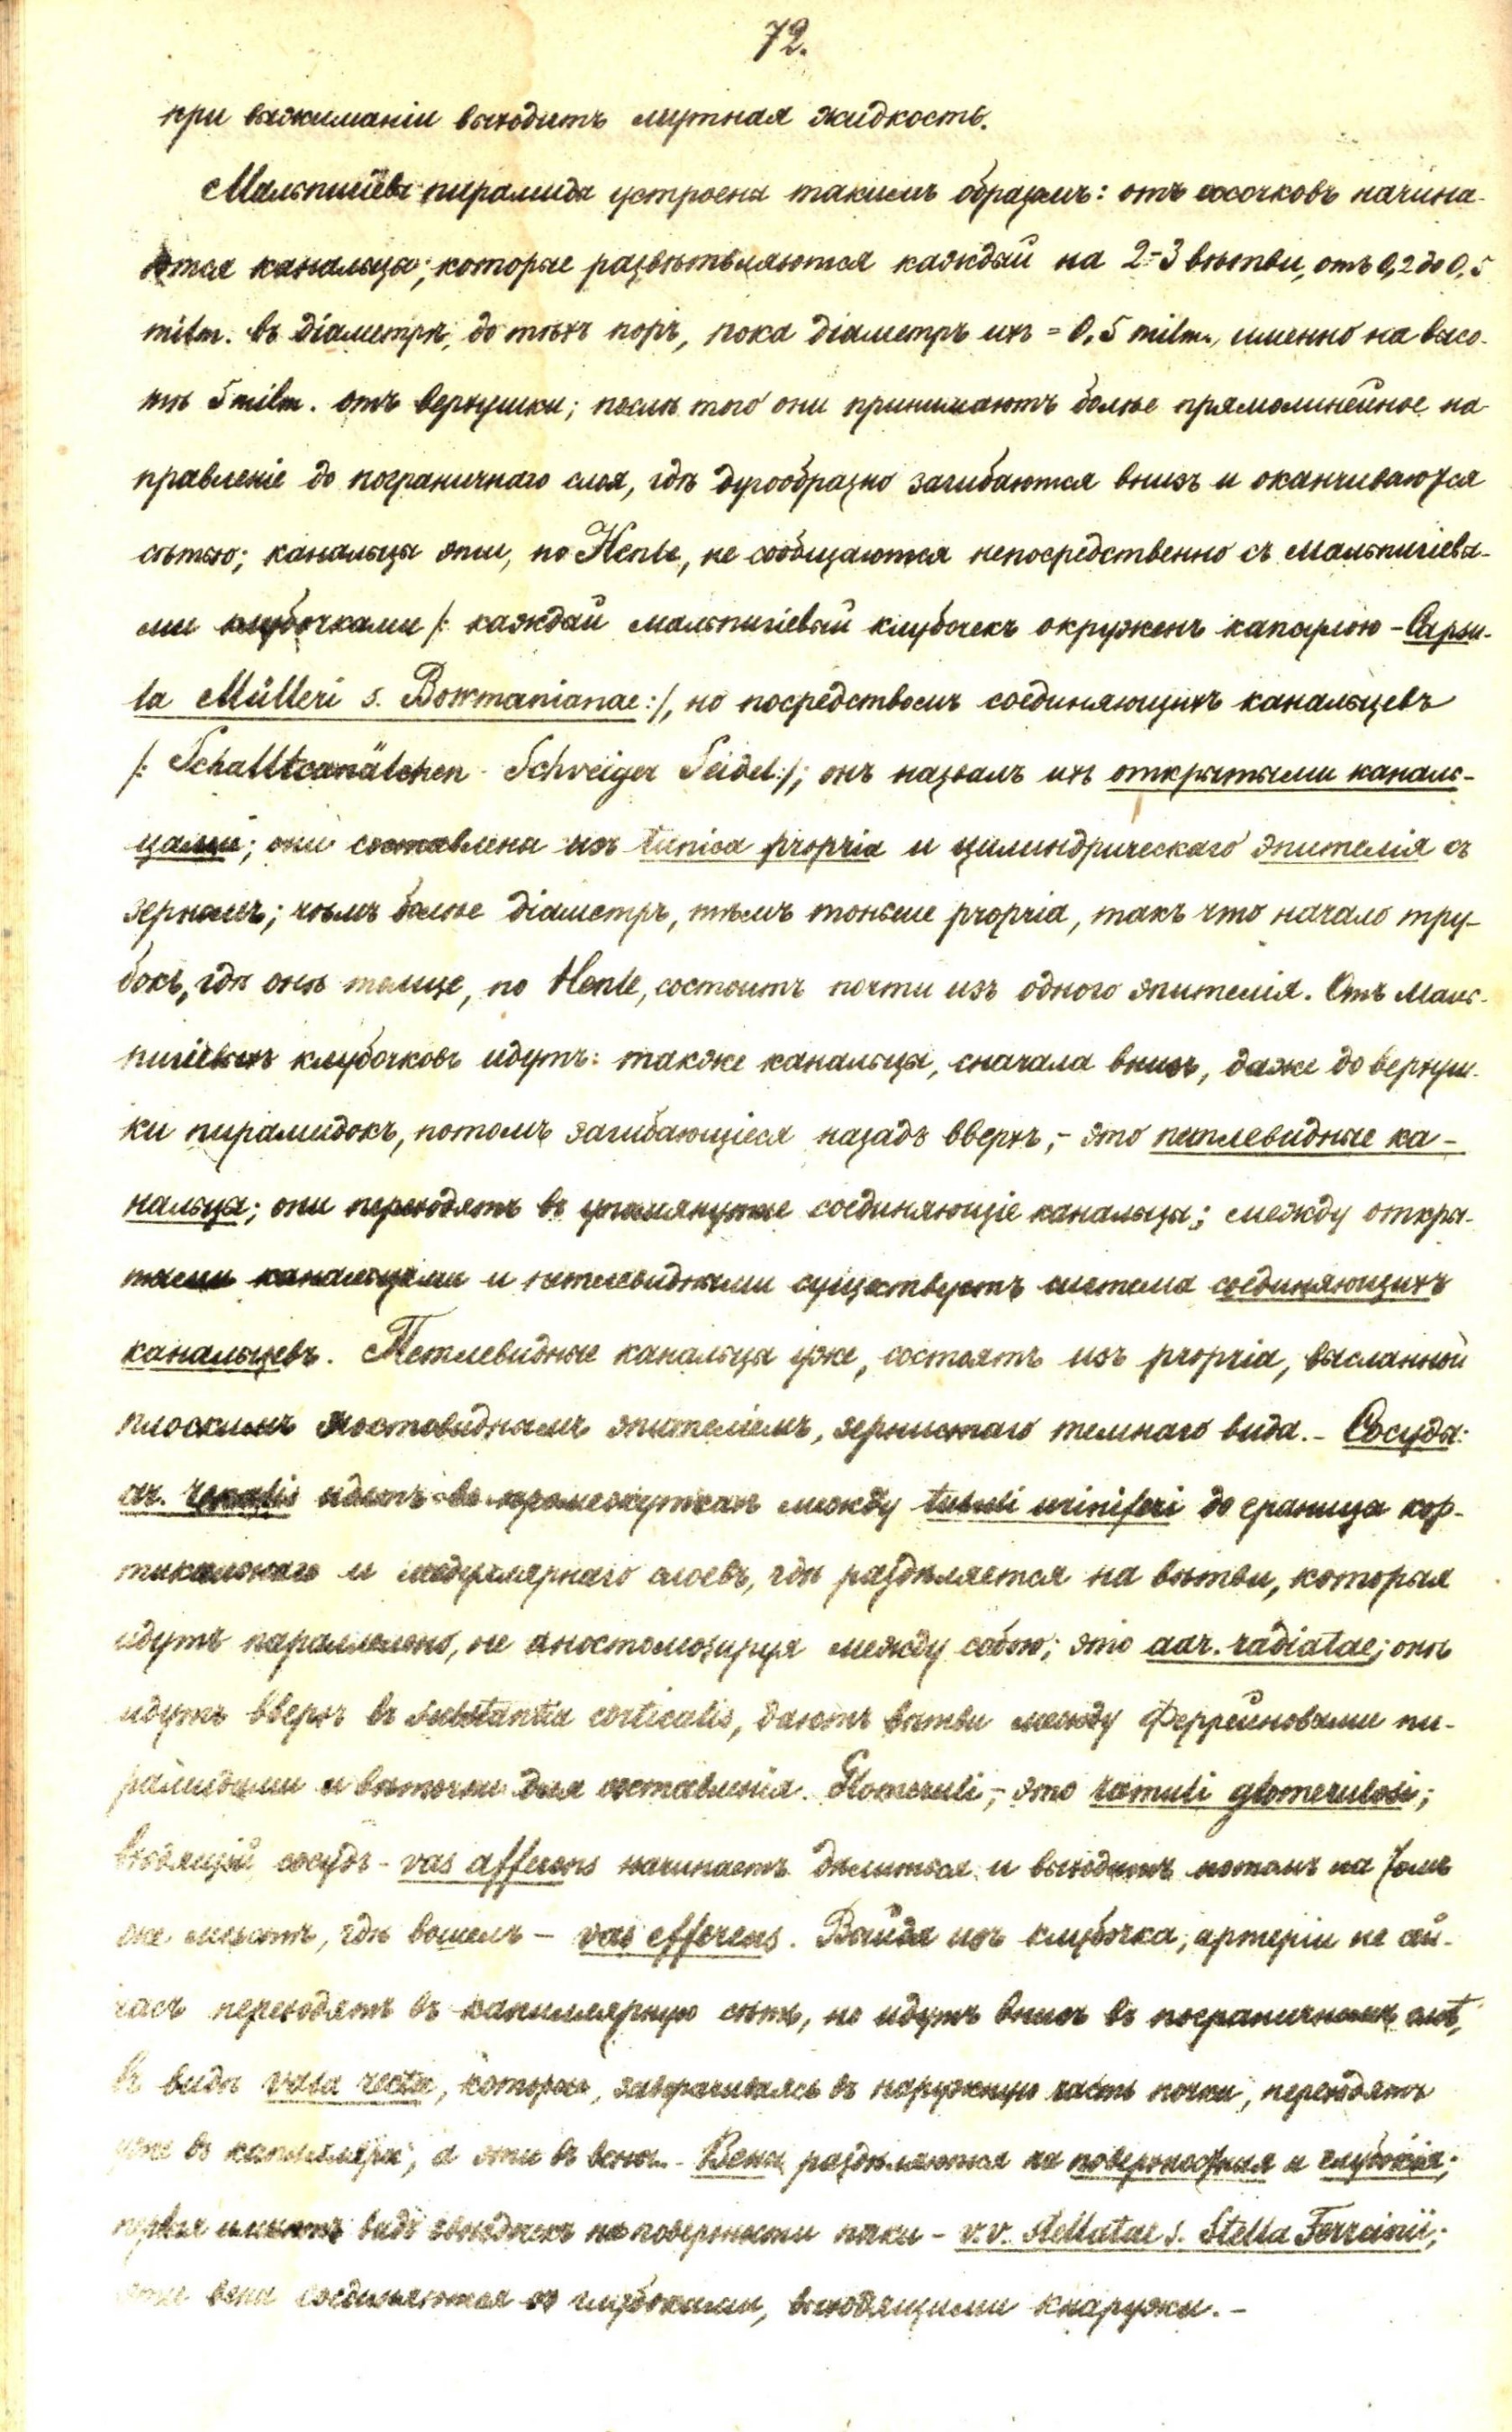 72.
при выжиманіи выходитъ мутная жидкость.
Мальпигіева пирамида устроена такимъ образомъ: отъ сосочковъ начина-
ются канальцы, которые развѣтвляются каждый на 2-3 вѣтви, отъ 0,2 до 0,5
milm. въ діаметрѣ, до тѣхъ поръ, пока діаметръ ихъ = 0,5 milm., именно на высо-
тѣ 5 milm. отъ верхушки; послѣ того они принимаютъ болѣе прямолинейное на-
правленіе до пограничнаго слоя, гдѣ дугообразно загибаются внизъ и оканчиваются
сѣтью; канальцы эти, по Henle, не сообщаются непосредственно съ мальпигіевы-
ми клубочками /: каждый мальпигіевый клубочекъ окруженъ капсулою - Capsu-
la Mülleri s. Bowmanianae :/, но посредствомъ соединяющихъ канальцевъ
/: Schaltcanälchen - Schweiger Seidel :/; онъ назвалъ ихъ открытыми каналь-
цами; они составлены изъ tunica propria и цилиндрическаго эпителія съ
зерномъ; чѣмъ болѣе діаметръ, тѣмъ тоньше propria, такъ что начало тру-
бокъ, гдѣ онѣ толще, по Henle, состоитъ почти изъ одного эпителія. Отъ Маль-
пигіевыхъ клубочковъ идутъ: также канальцы, сначала внизъ, даже до верхуш-
ки пирамидокъ, потомъ загибающіеся назадъ вверхъ; - это петлевидные ка-
нальцы; они переходятъ въ упомянутые соединяющіе канальцы; между откры-
тыми канальцами и петлевидными существуетъ система соединяющихъ
канальцевъ. Петлевидные канальцы уже, состоятъ изъ propria, высланной
плоскимъ мостовиднымъ эпителіемъ, зернистаго темнаго вида. - Сосуды:
ar. renalis идетъ въ промежуткахъ между tubuli uriniferi до границы кор-
тикальнаго и медуллярнаго слоевъ, гдѣ раздѣляется на вѣтви, которыя
идутъ параллельно, не аностомозируя между собою; это aar. radiatae; онѣ
идутъ вверхъ въ substantia corticalis, даютъ вѣтви между Феррейновыми пи-
рамидами и вѣточки для составленія Glomeruli, - это ramuli glomerulosi;
входящій сосудъ - vas afferens начинаетъ дѣлиться и выходитъ потомъ на томъ
же мѣстѣ, гдѣ вошелъ - vas efferens. Выйдя изъ клубочка, артеріи не сей-
часъ переходятъ въ капиллярную сѣть, но идутъ внизъ въ пограничномъ слоѣ,
въ видѣ vasa recta, которые, заворачиваясь въ наружную часть почки, переходятъ
уже въ капилляры, а эти въ вены. - Вены раздѣляются на поверхностныя и глубокія;
первыя имѣютъ видъ звѣздочекъ на поверхности почки - v.v. stellatae s. Stella Ferreinii;
вены соединяются съ глубокими, выходящими кнаружи. -